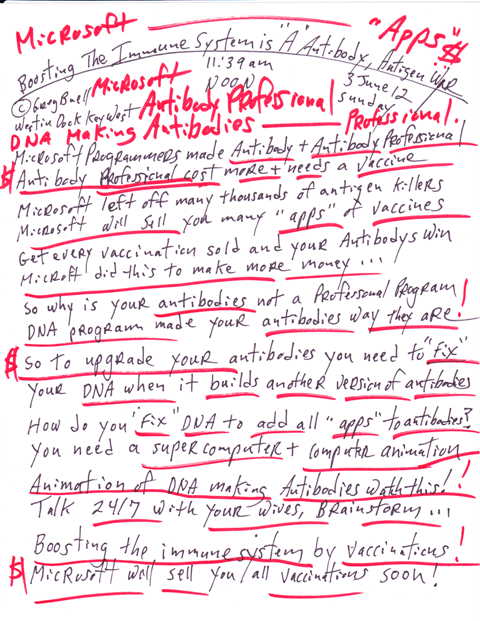 Microsoft "Apps" $
Boosting The Immune System is "A" Antibody, Antigen War
11:39 am
NOON
3 June 12
Sunday
© Greg Buell
Westin Dock Key West
Microsoft
Antibody Professional
DNA Making Antibodies — Professional.
Microsoft Programmers made Antibody + Antibody Professional
$ Antibody Professional cost more + needs a vaccine
Microsoft left off many thousands of antigen killers
Microsoft will sell you many "apps" of vaccines
Get every vaccination sold and your Antibodys win
Microft did this to make more money ...
So why is your antibodies not a Professonal Program!
DNA program made your antibodies way they are!
$ So to upgrade your antibodies you need to "fix"
your DNA when it builds another version of antibodies
How do you "fix" DNA to add all "apps" to antibodies?
You need a supercomputer + computer animation
Animation of DNA making Antibodies wath this!!
Talk 24/7 with your wives, Brainstorm ...
Boosting the immune system by vaccinations!
$ Microsoft will sell you all vaccinations soon!